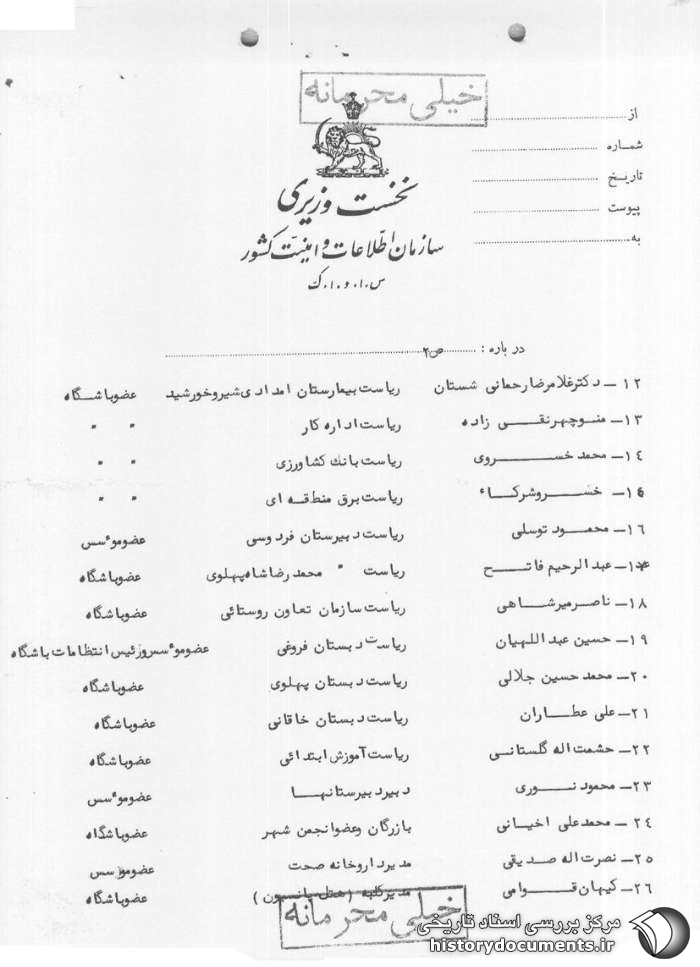 خیلی محرمانه
از
شماره
تاریخ
پیوست
به
نخست وزیری
سازمان اطلاعات و امنیت کشور
س.ا.و.ا.ک
در باره : ص۲
۱۲ــ دکترغلامرضارحمانی شستان ریاست بیمارستان امدادی شیروخورشید عضوباشگاه
۱۳ــ منوچهرنقی زاده ریاست اداره کار " "
۱۴ــ محمد خسروی ریاست بانک کشاورزی " "
۱۵ــ خسروشرکاء ریاست برق منطقه ای " "
۱۶ــ محمود توسلی ریاست دبیرستان فردوسی عضوموءسس
۱۷ــ عبدالرحیم فاتح ریاست " محمدرضاشاه پهلوی عضوباشگاه
۱۸ــ ناصرمیرشاهی ریاست سازمان تعاون روستائی عضوباشگاه
۱۹ــ حسین عبداللهیان ریاست دبستان فروغی عضوموءسس ورئیس انتظامات باشگاه
۲۰ــ محمد حسین جلالی ریاست دبستان پهلوی عضوباشگاه
۲۱ــ علی عطاران ریاست دبستان خاقانی عضوباشگاه
۲۲ــ حشمت اله گلستانی ریاست آموزش ابتدائی عضوباشگاه
۲۳ــ محمود نوری دبیردبیرستانها عضوموءسس
۲۴ــ محمدعلی اخیانی بازرگان وعضوانجمن شهر عضوباشگاه
۲۵ــ نصرت اله صدیقی مدیرداروخانه صحت عضوموسس
۲۶ــ کیهان قوامی مدیرکلبه (هتل پانسیون) عضوباشگاه
خیلی محرمانه
مرکز بررسی اسناد تاریخی
historydocuments.ir